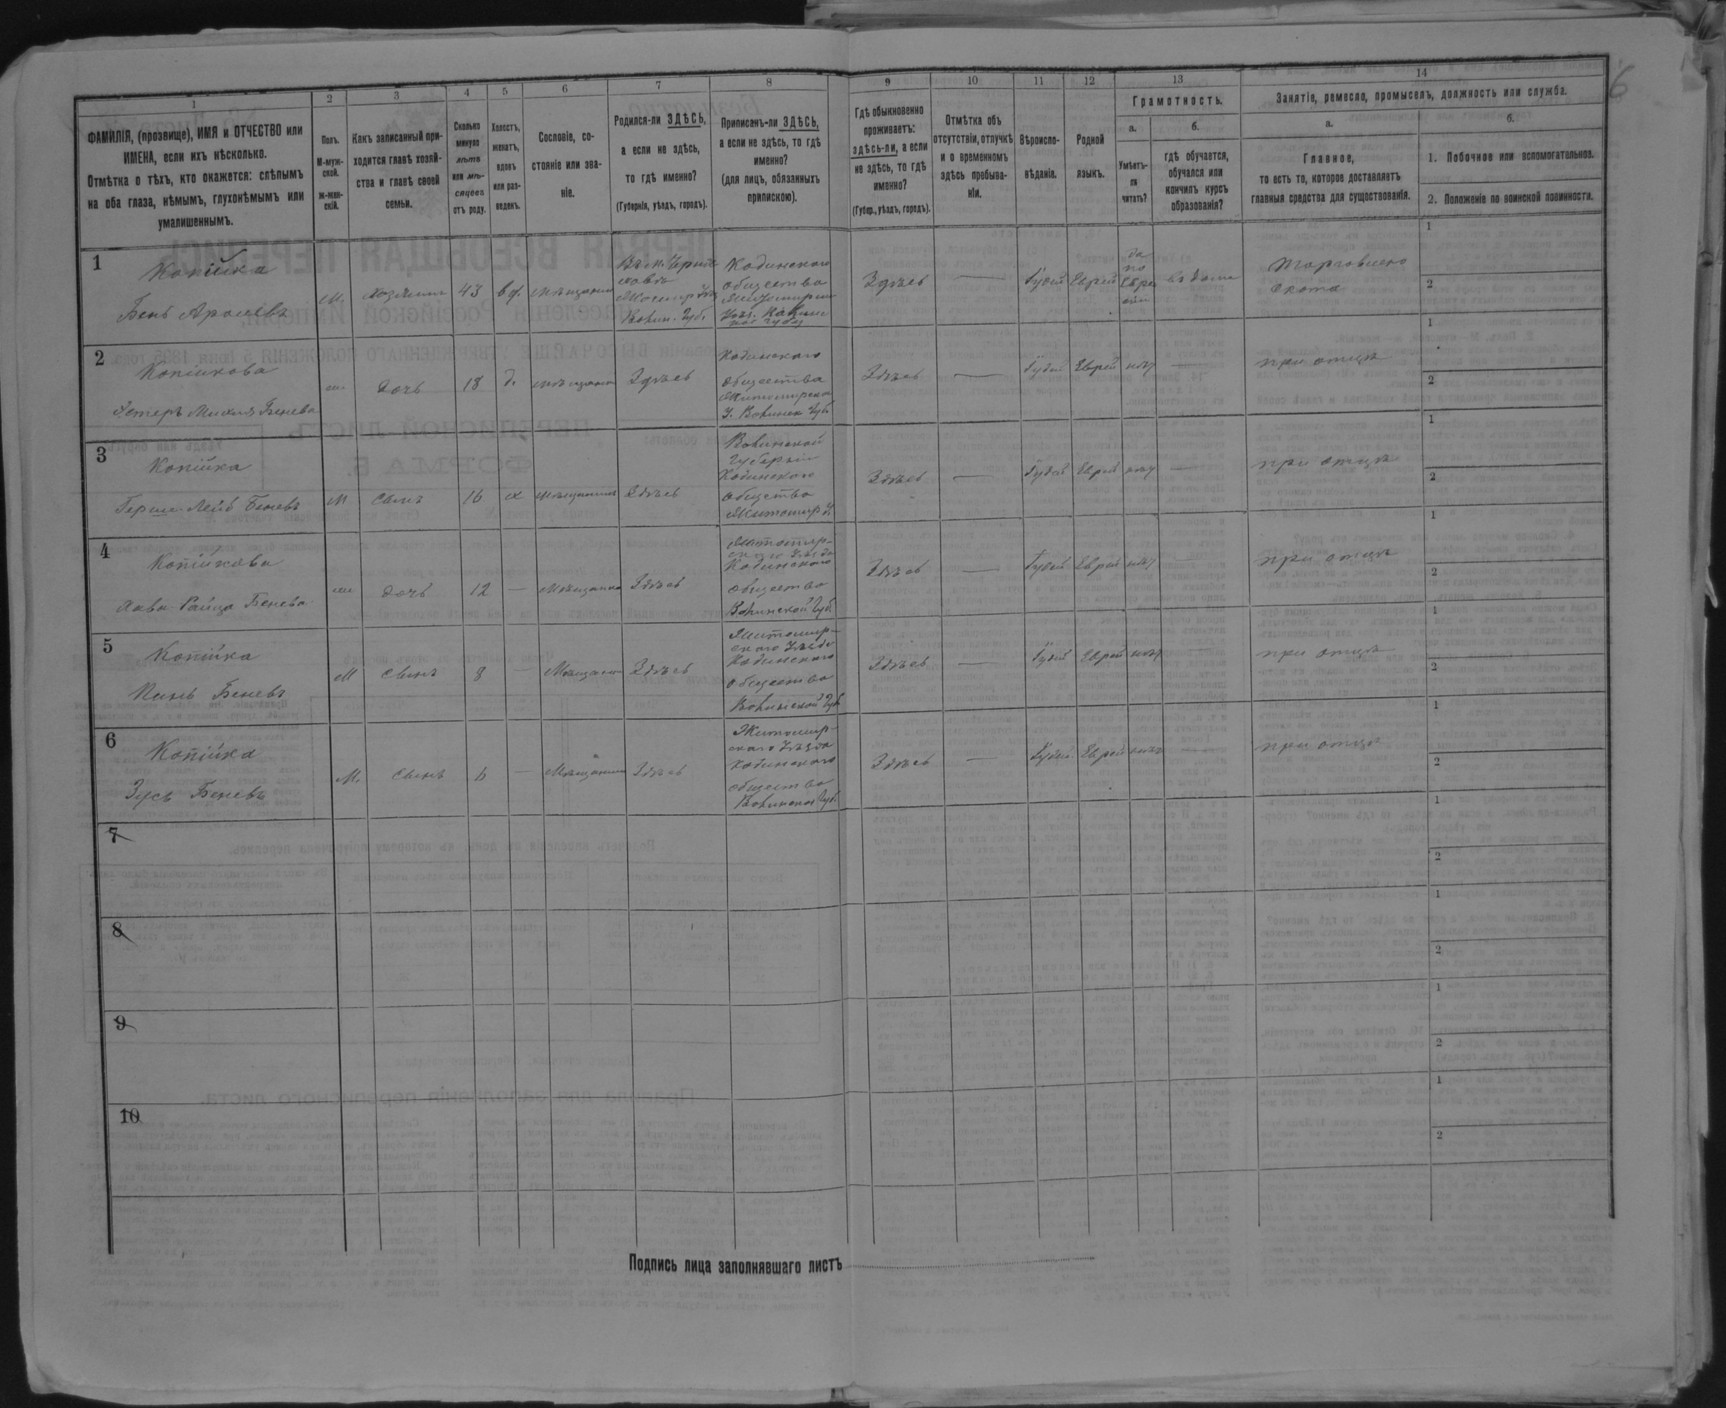 6
1 2 3 4 5 6 7 8 9 10 11 12 13 14
ФАМИЛІЯ, (прозвище), ИМЯ и ОТЧЕСТВО или
ИМЕНА, если ихъ нѣсколько.
Отмѣтка о тѣхъ, кто окажется: слѣпымъ
на оба глаза, нѣмымъ, глухонѣмымъ или
умалишеннымъ.
Полъ.
М-мужской.
Ж-женскій.
Какъ записанный при-
ходится главѣ хозяй-
ства и главѣ своей
семьи.
Сколько
минуло
лѣтъ
или мѣ-
сяцевъ
отъ роду.
Холостъ,
женатъ,
вдовъ
или раз-
веденъ.
Сословіе, со-
стояніе или зва-
ніе.
Родился-ли ЗДѢСЬ,
а если не здѣсь,
то гдѣ именно?
(Губернія, уѣздъ, городъ).
Приписанъ-ли ЗДѢСЬ,
а если не здѣсь, то гдѣ
именно?
(для лицъ, обязанныхъ
припискою).
Гдѣ обыкновенно
проживаетъ:
здѣсь-ли, а если
не здѣсь, то гдѣ
именно?
(Губер., уѣздъ, городъ).
Отмѣтка объ
отсутствіи, отлучкѣ
и о временномъ
здѣсь пребыва-
ніи.
Вѣроиспо-
вѣданіе.
Родной
языкъ.
Грамотность.
а.
Умѣетъ-
ли
читать?
б.
гдѣ обучается,
обучался или
кончилъ курсъ
образованія?
Занятіе, ремесло, промыселъ, должность или служба.
а.
Главное,
то есть то, которое доставляетъ
главныя средства для существованія.
б.
1. Побочное или вспомогательное.
2. Положеніе по воинской повинности.
1
Копійка
Бень
м.
Хозяинъ
43
вд.
мѣщанинъ
Кодинского
общества
Здѣсь
Іудей
Еврей
да
по
Торговлею
скота
1
2
2
Копійкова
Бенева
дочь
18
д.
мѣщанка
Здѣсь
Кодинского
общества
Житомирско
У. Волынск Губ
Здѣсь
Іудей
Еврей
нѣт
при отцѣ
1
2
3
Копійка
Герша-Лейб Беневъ
М
Сынъ
16
х
мѣщанинъ
Здѣсь
Волынской
Губерніи
Кодинского
общества
Житомир У.
Здѣсь
Іудей
Еврей
нѣт
при отцѣ
1
2
4
Копійкова
Бенева
дочь
12
Мѣщанка
Здѣсь
Житомир-
ского Уѣзда
Кодинского
общества
Волынской Губ
Здѣсь
Іудей
Еврей
нѣт
при отцѣ
1
2
5
Копійка
Беневъ
М
Сынъ
8
Мѣщанин
Здѣсь
Житомир-
ского Уѣзда
Кодинского
общества
Волынской Губ
Здѣсь
Іудей
Еврей
нѣт
при отцѣ
1
2
6
Копійка
Зусь Беневъ
М.
Сынъ
6
Мѣщанин
Здѣсь
Житомир-
ского Уѣзда
Кодинского
общества
Волынской Губ
Здѣсь
Іудей
Еврей
нѣтъ
при отцѣ
1
2
7
1
2
8
1
2
9
1
2
10
1
2
Подпись лица заполнявшаго листъ